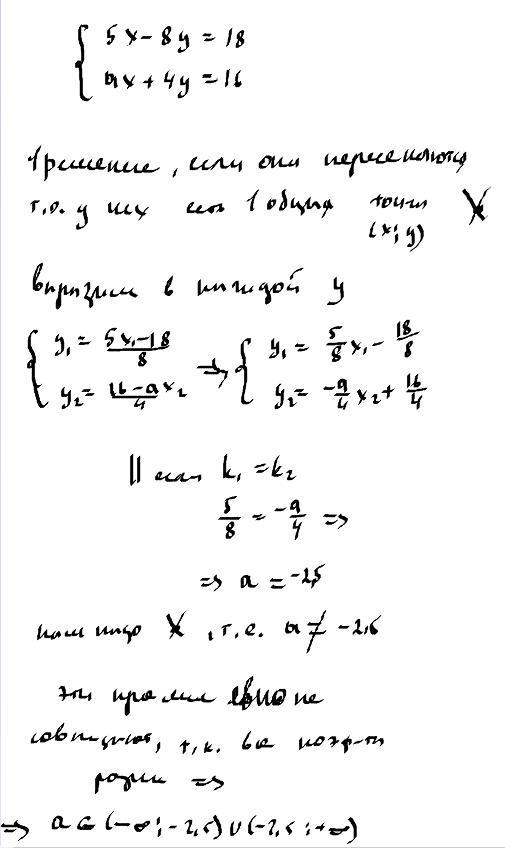 5x - 8y = 18
ax + 4y = 16
1 решение, если они пересекаются
т.е. у них есть 1 общая точка
(x; y)
выразим в каждой y
y₁ = (5x₁-18)/8 => y₁ = 5/8 x₁ - 18/8
y₂ = (16-ax₂)/4 y₂ = -a/4 x₂ + 16/4
|| если k₁ = k₂
5/8 = -a/4 =>
=> a = -2,5
нам надо , т.е. a ≠ -2,5
эти прямые явно не
совпадают, т.к. все коэф-ты
разные =>
=> a ∈ (-∞; -2,5) ∪ (-2,5; +∞)